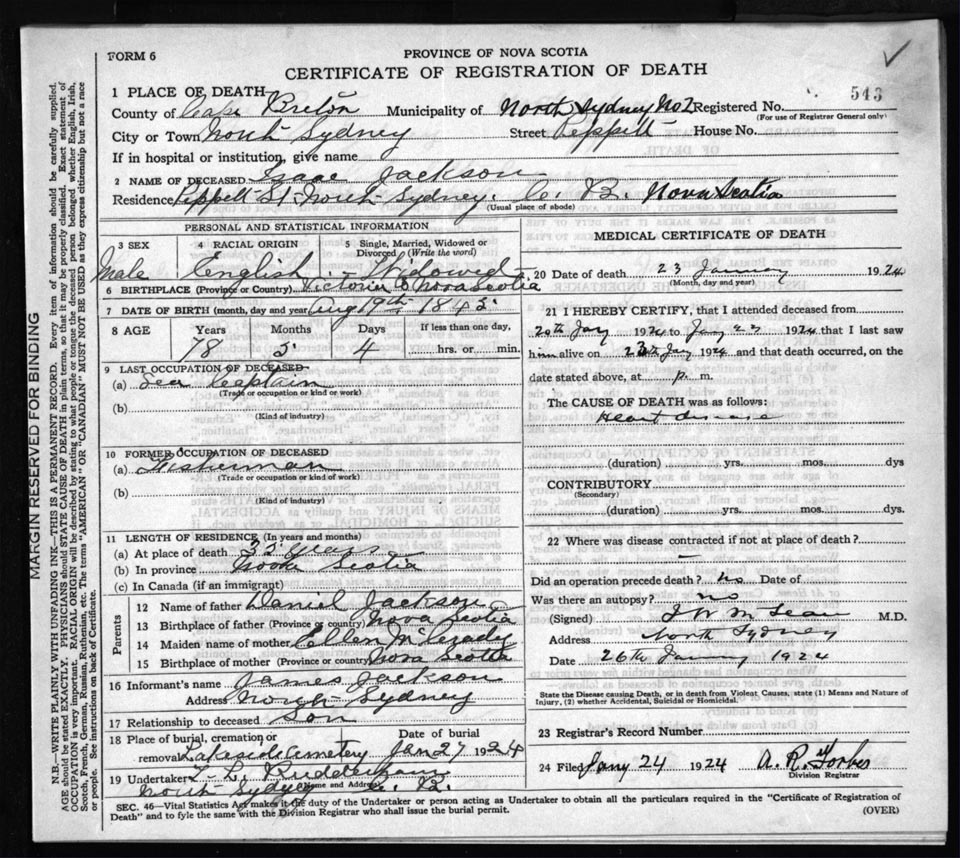 FORM 6
PROVINCE OF NOVA SCOTIA
CERTIFICATE OF REGISTRATION OF DEATH
1 PLACE OF DEATH
County of Cape Breton Municipality of North Sydney No 2 Registered No. 543
(For use of Registrar General only)
City or Town North Sydney Street Peppitt House No.
If in hospital or institution, give name
2 NAME OF DECEASED Isaac Jackson
Residence Peppett St. North Sydney. C. B. Nova Scotia
(Usual place of abode)
PERSONAL AND STATISTICAL INFORMATION
3 SEX 4 RACIAL ORIGIN 5 Single, Married, Widowed or Divorced (Write the word)
Male English Widowed
6 BIRTHPLACE (Province or Country) Victoria Co Nova Scotia
7 DATE OF BIRTH (month, day and year) Aug 19th 1845
8 AGE Years Months Days If less than one day,
78 5 4 hrs. or min.
9 LAST OCCUPATION OF DECEASED
(a) Sea Captain
(Trade or occupation or kind or work)
(b)
(Kind of industry)
10 FORMER OCCUPATION OF DECEASED
(a) Fisherman
(Trade or occupation or kind of work)
(b)
(Kind of industry)
11 LENGTH OF RESIDENCE (In years and months)
(a) At place of death 35 years
(b) In province Nova Scotia
(c) In Canada (if an immigrant)
Parents
12 Name of father Daniel Jackson
13 Birthplace of father (Province or country) Nova Scotia
14 Maiden name of mother Ellen McGrady
15 Birthplace of mother (Province or country) Nova Scotia
16 Informant's name James Jackson
Address North Sydney
17 Relationship to deceased Son
18 Place of burial, cremation or removal Date of burial
Lakeside Cemetery Jan 27 1924
19 Undertaker
(Name and Address)
North Sydney C. B.
MEDICAL CERTIFICATE OF DEATH
20 Date of death 23 January 1924
(Month, day and year)
21 I HEREBY CERTIFY, that I attended deceased from
20th Jay 1924 to Jany 23 1924 that I last saw
him alive on 23th Jay 1924 and that death occurred, on the
date stated above, at p. m.
The CAUSE OF DEATH was as follows:
Heart disease
(duration) yrs. mos. dys
CONTRIBUTORY
(Secondary)
(duration) yrs. mos. dys.
22 Where was disease contracted if not at place of death?
Did an operation precede death? no Date of
Was there an autopsy? no
(Signed) J W McLean M.D.
Address North Sydney
Date 26th January 1924
State the Disease causing Death, or in death from Violent Causes, state (1) Means and Nature of
Injury, (2) whether Accidental, Suicidal or Homicidal.
23 Registrar's Record Number
24 Filed Jany 24 1924 A. R. Forbes
Division Registrar
SEC. 46—Vital Statistics Act makes it the duty of the Undertaker or person acting as Undertaker to obtain all the particulars required in the "Certificate of Registration of
Death" and to fyle the same with the Division Registrar who shall issue the burial permit. (OVER)
MARGIN RESERVED FOR BINDING
N.B.—WRITE PLAINLY WITH UNFADING INK—THIS IS A PERMANENT RECORD. Every item of information should be carefully supplied.
AGE should be stated EXACTLY. PHYSICIANS should STATE CAUSE OF DEATH in plain terms, so that it may be properly classified. Exact statement of
OCCUPATION is very important. RACIAL ORIGIN will be described by stating to what people or tongue the deceased person belonged whether English, Irish,
Scotch, French, German, Russian, Ruthenian, etc. The terms "AMERICAN" OR "CANADIAN" MUST NOT BE USED as they express citizenship but not a race
or people. See instructions on back of Certificate.